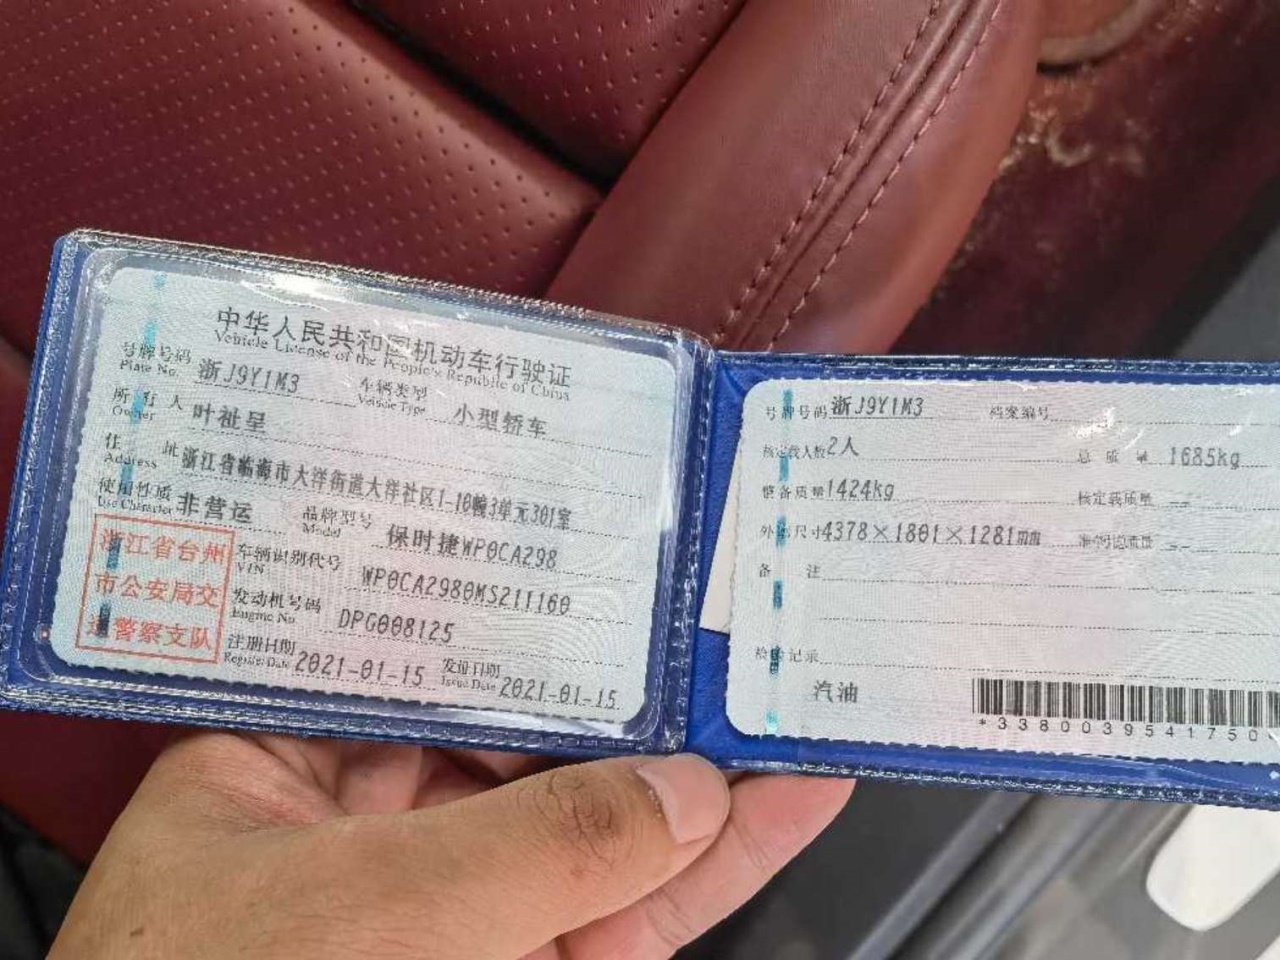 中华人民共和国机动车行驶证
Vehicle License of the People's Republic of China
号牌号码 浙J9Y1M3 车辆类型 小型轿车
Plate No. Vehicle Type
所有人 叶祉呈
Owner
住址 浙江省临海市大洋街道大洋社区1-10幢3单元301室
Address
使用性质 非营运 品牌型号 保时捷WP0CA298
Use Character Model
浙江省台州
市公安局交
通警察支队
车辆识别代号 WP0CA2980MS211160
VIN
发动机号码 DPG008125
Engine No.
注册日期 2021-01-15 发证日期 2021-01-15
Register Date Issue Date
号牌号码 浙J9Y1M3 档案编号
核定载人数 2人 总质量 1685kg
整备质量 1424kg 核定载质量 --
外廓尺寸 4378×1801×1281mm 准牵引总质量 --
备注
检验记录
汽油
*3380039541750